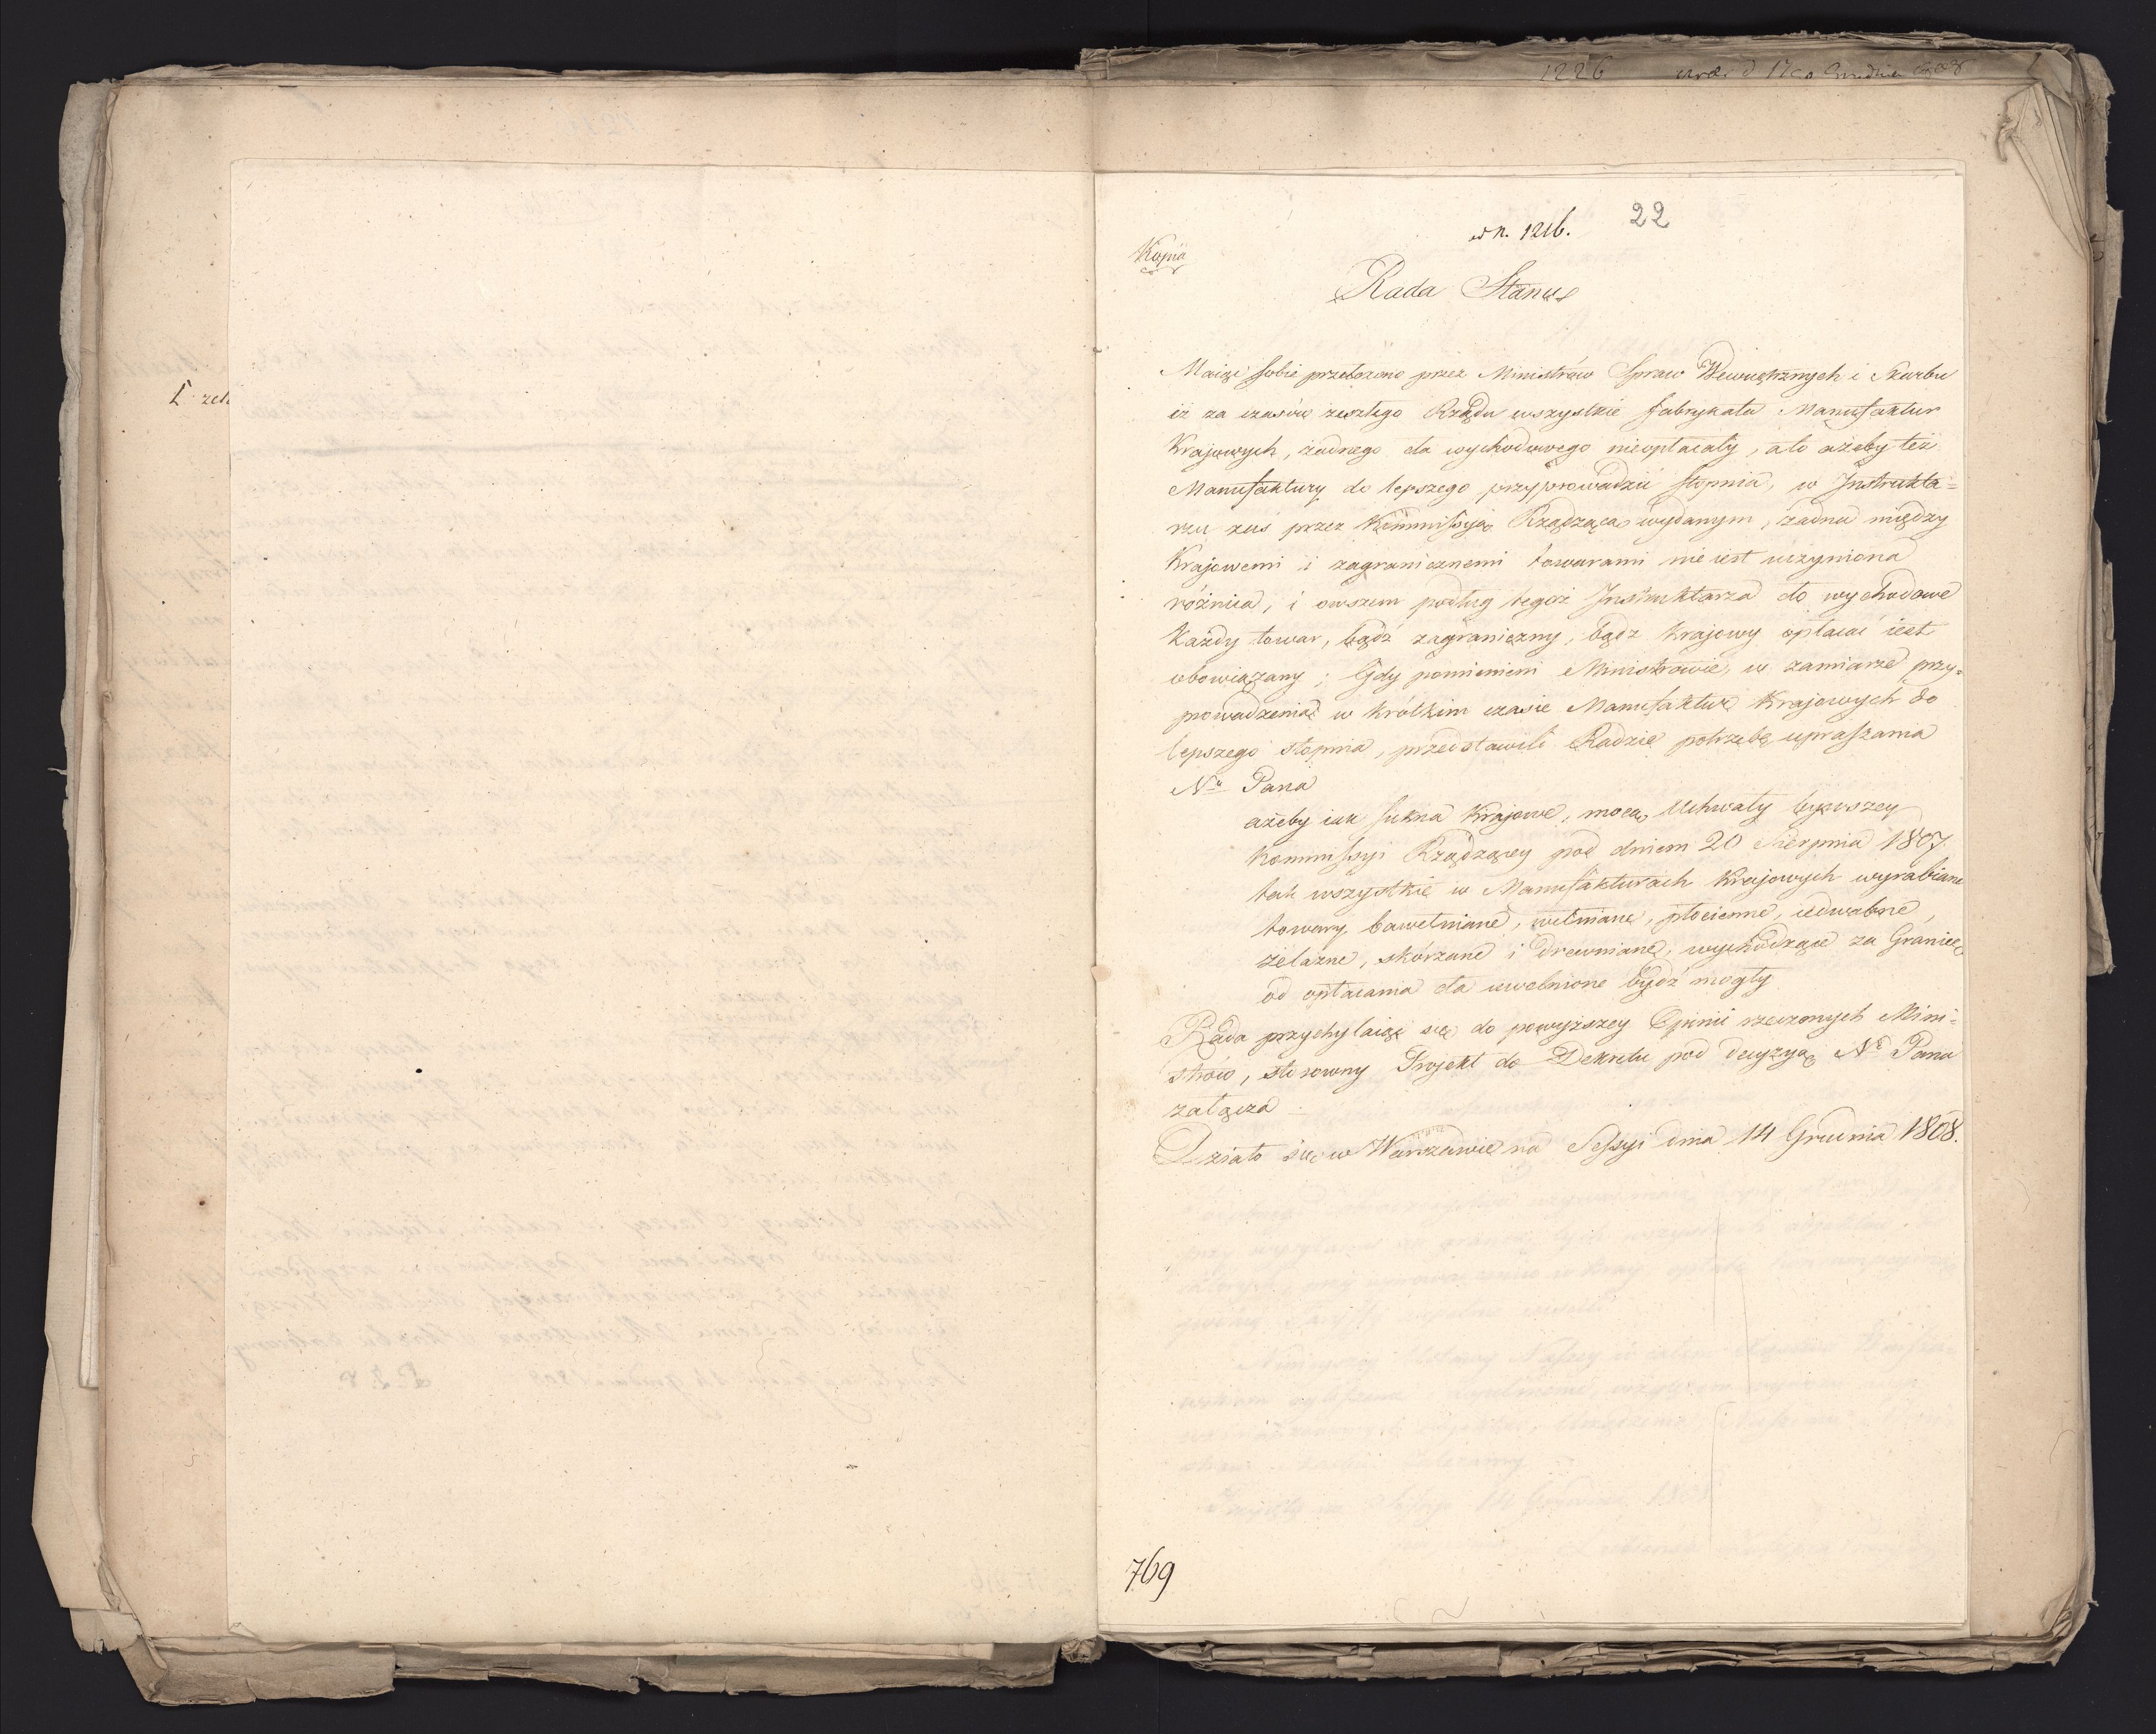 1226
22
w n. 1216.
Kopia
Rada Stanu
Maiąc sobie przełożono przez Ministrów Spraw Wewnętrznych i Skarbu
iż za czasów zeszłego Rządu wszystkie fabrykata Manufaktur
Krajowych, żadnego cła wychodowego nieopłacały, ato ażeby też
Manufaktury do lepszego przyprowadzić stopnia, w Instrukta=
rzu zaś przez Kommissyią Rządzącą wydanym, żadna między
Krajowemi i zagranicznemi towarami nie iest uczyniona
różnica, i owszem podług tegoż Instruktarza cło wychodowe
Każdy towar, bądź zagraniczny, bądz krajowy opłacać iest
obowiązany; Gdy pomienieni Ministrowie, w zamiarze przy=
prowadzenia w krótkim czasie Manufaktur Krajowych do
lepszego stopnia, przedstawili Radzie potrzebę upraszania
No Pana
ażeby iak sukna Krajowe, mocą Uchwały bywszey
Kommissyi Rządzącey pod dniem 20 Sierpnia 1807.
tak wszystkie w Manufakturach Krajowych wyrabiane
towary bawełniane, wełniane, płocienne, iedwabne,
żelazne, skórzane i drewniane, wychodzące za Granicę
od opłacania cła uwolnione bydź mogły
Rada przychylaiąc się do powyższey Opinii rzeczonych Mini=
strów, stosowny Projekt do Dekretu pod decyzyą No Pana
załącza
Działo się w Warszawie na Sessyi dnia 14 Grudnia 1808.
769